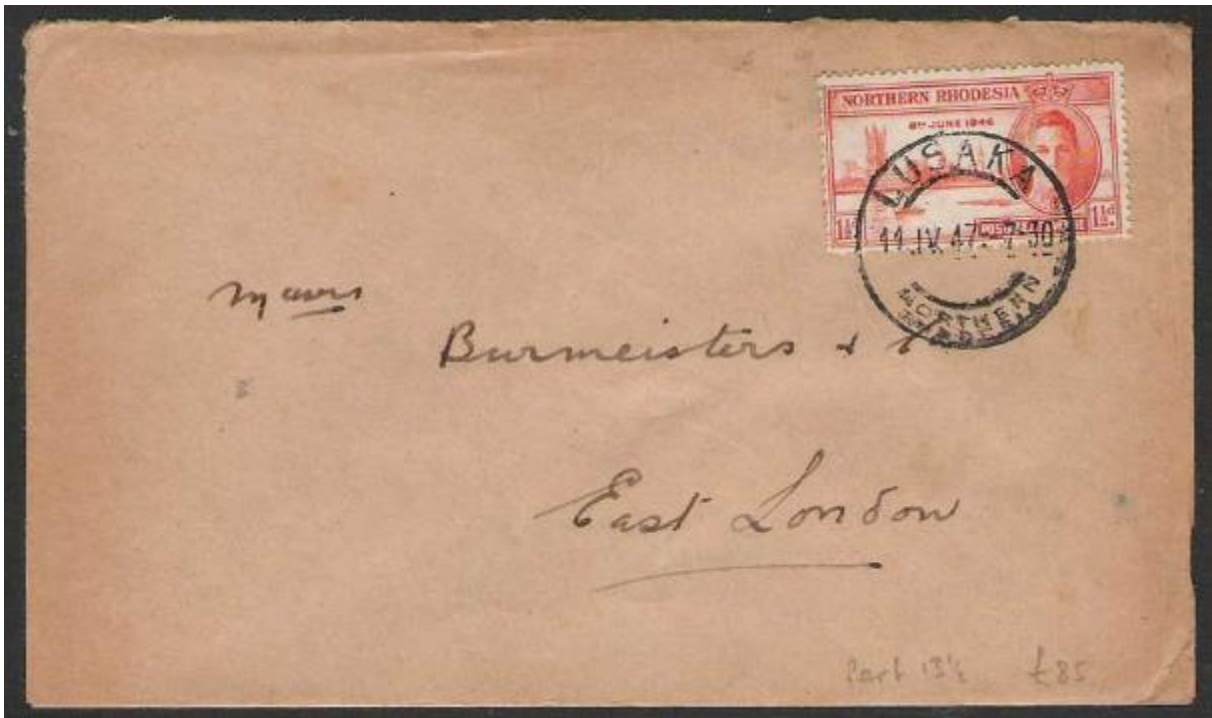 NORTHERN RHODESIA
8TH JUNE 1946
1½d. 1½d.
LUSAKA
11 IV 47 - 7-30
NORTHERN
RHODESIA
Messrs
Burmeisters & C
East London
Perf 13½ £85